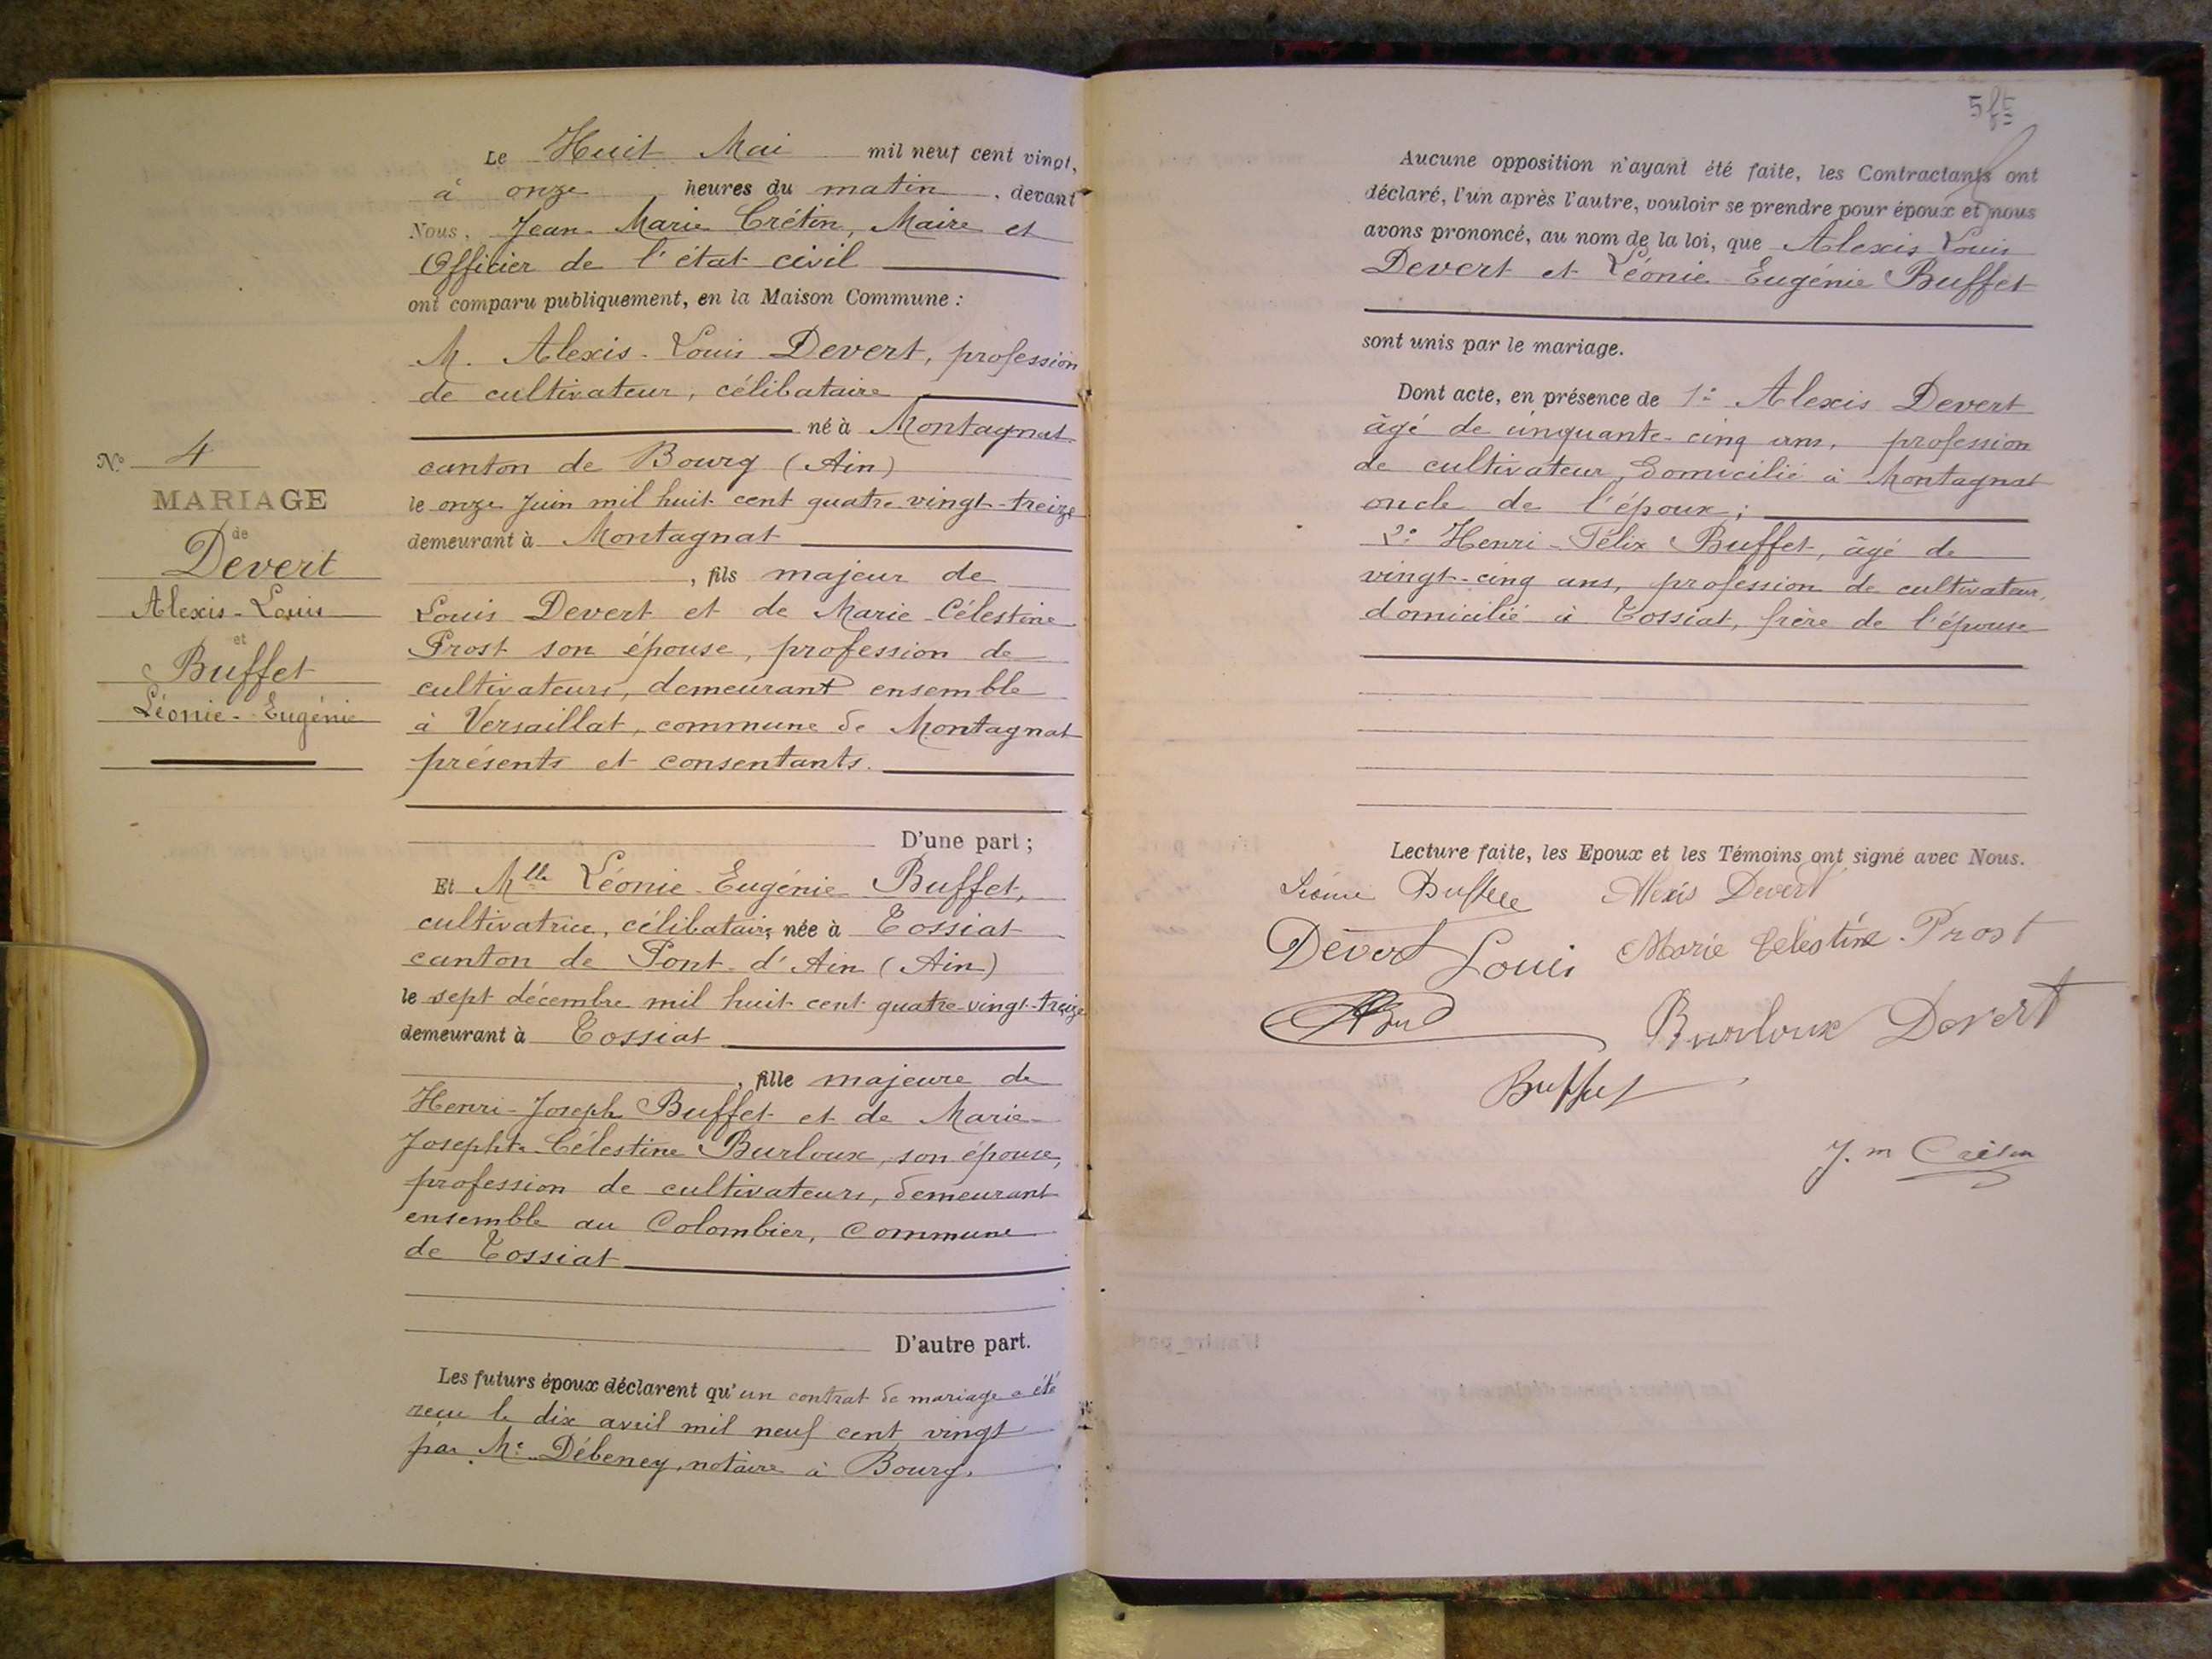 N° 4
MARIAGE
de
Devert
Alexis-Louis
et
Buffet
Léonie-Eugénie
Le Huit Mai mil neuf cent vingt,
à onze heures du matin, devant
Nous, Jean-Marie Crétin, Maire et
Officier de l'état civil
ont comparu publiquement, en la Maison Commune :
M. Alexis-Louis Devert, profession
de cultivateur, célibataire
né à Montagnat
canton de Bourg (Ain)
le onze Juin mil huit cent quatre-vingt-treize
demeurant à Montagnat
, fils majeur de
Louis Devert et de Marie-Célestine
Prost son épouse, profession de
cultivateurs, demeurant ensemble
à Versaillat, commune de Montagnat
présents et consentants.
D'une part ;
Et Mlle Léonie-Eugénie Buffet,
cultivatrice, célibataire, née à Tossiat
canton de Pont-d'Ain (Ain)
le sept décembre mil huit cent quatre-vingt-treize
demeurant à Tossiat
, fille majeure de
Henri-Joseph Buffet et de Marie-
Josephte-Célestine Burloux, son épouse,
profession de cultivateurs, demeurant
ensemble au Colombier, commune
de Tossiat
D'autre part.
Les futurs époux déclarent qu'un contrat de mariage a été
reçu le dix avril mil neuf cent vingt
par Me Débeney, notaire à Bourg.
Aucune opposition n'ayant été faite, les Contractants ont
déclaré, l'un après l'autre, vouloir se prendre pour époux et nous
avons prononcé, au nom de la loi, que Alexis Louis
Devert et Léonie-Eugénie Buffet
sont unis par le mariage.
Dont acte, en présence de 1° Alexis Devert
âgé de cinquante-cinq ans, profession
de cultivateur, domicilié à Montagnat
oncle de l'époux ;
2° Henri-Félix Buffet, âgé de
vingt-cinq ans, profession de cultivateur,
domicilié à Tossiat, frère de l'épouse
Lecture faite, les Epoux et les Témoins ont signé avec Nous.
Léonie Buffet Alexis Devert
Devert Louis Marie Celestine Prost
Burloux Devert
Buffet
J. m Crétin